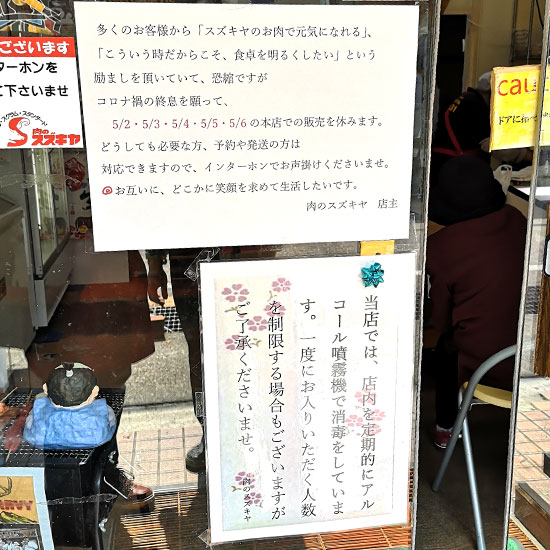 多くのお客様から「スズキヤのお肉で元気になれる」、
「こういう時だからこそ、食卓を明るくしたい」という
励ましを頂いていて、恐縮ですが
コロナ禍の終息を願って、
5/2・5/3・5/4・5/5・5/6の本店での販売を休みます。
どうしても必要な方、予約や発送の方は
対応できますので、インターホンでお声掛けくださいませ。
◎お互いに、どこかに笑顔を求めて生活したいです。
肉のスズキヤ 店主
ございます
ターホンを
下さいませ
肉の
スズキヤ
当店では、店内を定期的にアル
コール噴霧機で消毒をしていま
す。一度にお入りいただく人数
を制限する場合もございますが
ご了承くださいませ。
肉のスズキヤ
CAU
ドアに